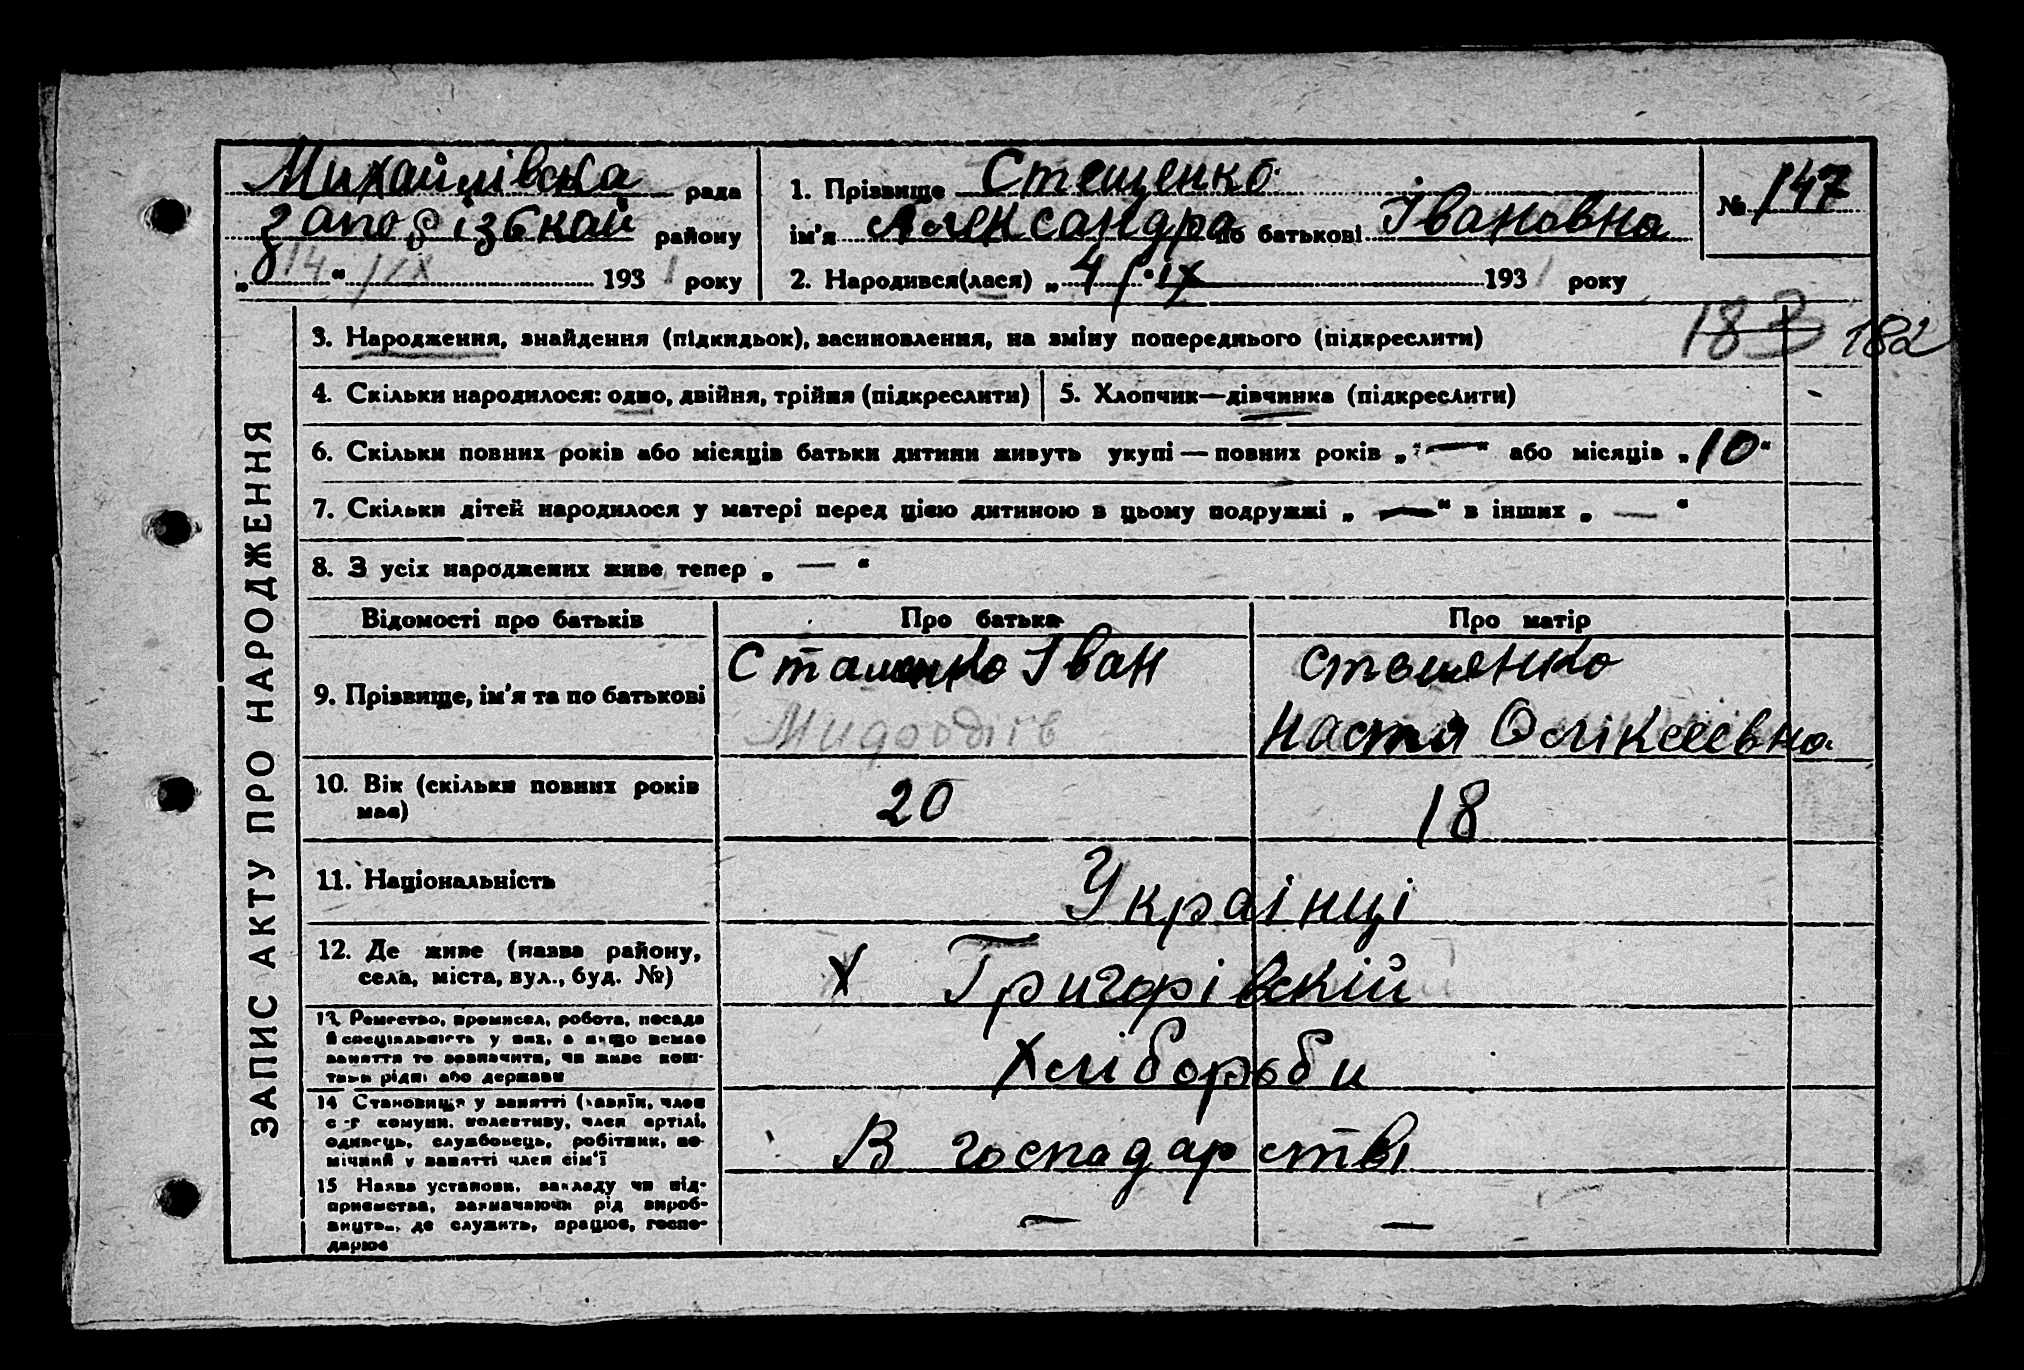 Михайлівська рада
Запорізькай району
„ 14 “ IX 1931 року
1. Прізвище Стещенко
ім'я Александра по батькові Івановна
2. Народився(лася) „ 4 “ IX 1931 року
№ 147
ЗАПИС АКТУ ПРО НАРОДЖЕННЯ
3. Народження, знайдення (підкидьок), засиновлення, на зміну попереднього (підкреслити)
183 182
4. Скільки народилося: одно, двійня, трійня (підкреслити)
5. Хлопчик—дівчинка (підкреслити)
6. Скільки повних років або місяців батьки дитини живуть укупі — повних років „ — “ або місяців „ 10 “
7. Скільки дітей народилося у матері перед цією дитиною в цьому подружжі „ — “ в інших „ — “
8. З усіх народжених живе тепер „ — “
Відомості про батьків
Про батька
Про матір
9. Прізвище, ім'я та по батькові
Сташенко Іван
Стешенко
Настя Оліксеєвна
10. Вік (скільки повних років
має)
20
18
11. Національність
Украінці
12. Де живе (назва району,
села, міста, вул., буд. №)
Х Григорівскій
13. Ремество, промисел, робота, посада
й спеціяльність у них, а якщо немає
заняття то зазначити, чи живе кош-
тами рідні або держави
Хліборьби
14 Становище у занятті (хазяїн, член
с.-г комуни, колективу, член артілі,
одинець, службовець, робітник, по-
мічний у занятті член сім'ї
В господарстві
15 Назва установи, закладу чи під-
приємства, зазначаючи рід вироб-
ництва, де служить, працює, госпо-
дарює
— —